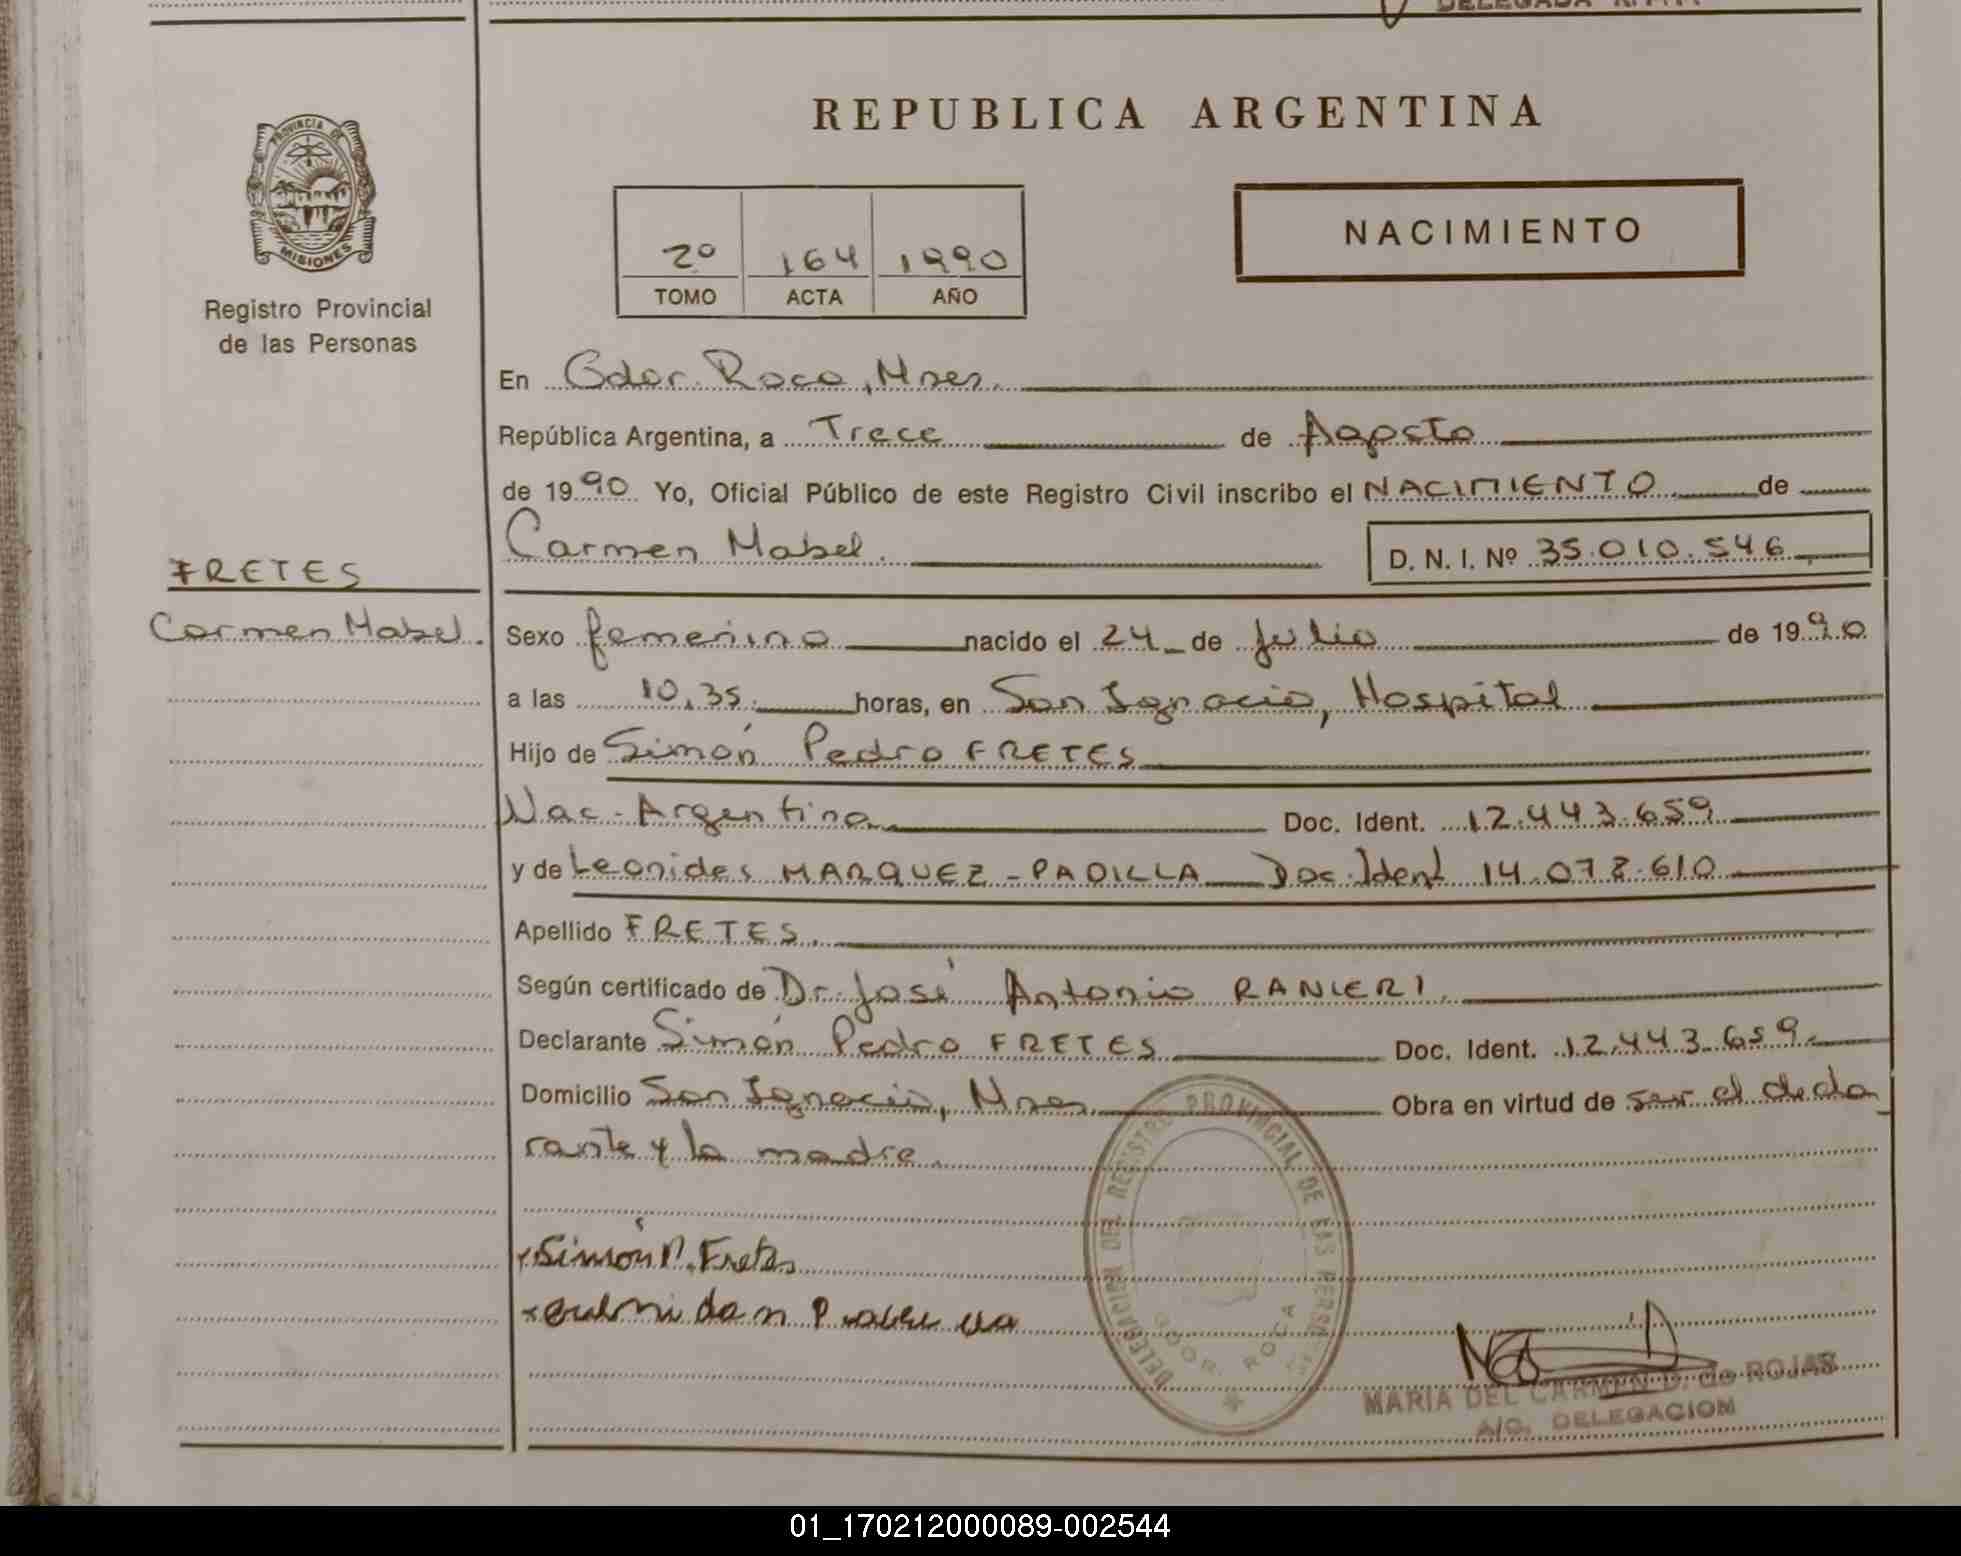 REPUBLICA ARGENTINA
PROVINCIA DE
MISIONES
Registro Provincial
de las Personas
2º 164 1990
TOMO ACTA AÑO
NACIMIENTO
En Gdor. Roca, Mnes.
República Argentina, a Trece de Agosto
de 1990 Yo, Oficial Público de este Registro Civil inscribo el NACIMIENTO de
Carmen Mabel. D. N. I. Nº 35.010.546
FRETES
Carmen Mabel.
Sexo femenino nacido el 24 de Julio de 1990
a las 10,35 horas, en San Ignacio, Hospital
Hijo de Simón Pedro FRETES
Nac. Argentina Doc. Ident. 12.443.659
y de Leonides MARQUEZ - PADILLA Doc. Ident 14.072.610
Apellido FRETES.
Según certificado de Dr. José Antonio RANIERI.
Declarante Simón Pedro FRETES Doc. Ident. 12.443.659.
Domicilio San Ignacio, Mnes Obra en virtud de ser el decla
rante y la madre.
Simón P. Fretes
DELEGACION DEL REGISTRO PROVINCIAL DE LAS PERSONAS
GDOR. ROCA
MARIA DEL CARMEN D. de ROJAS
A/C. DELEGACION
01_170212000089-002544